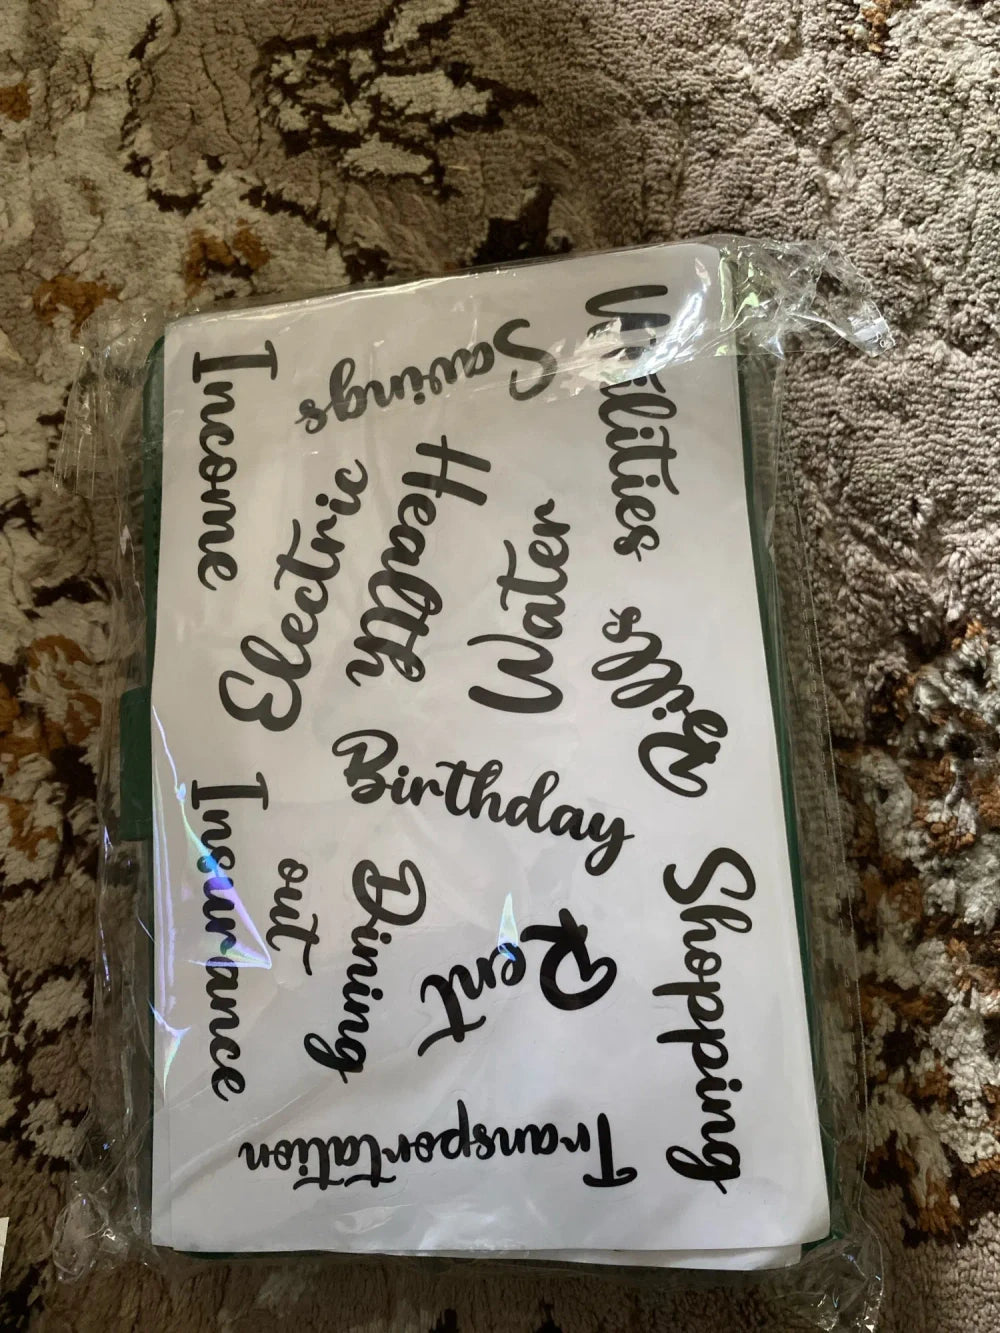 Utilities
Savings
Income
Health
Water
Electric
Bills
Birthday
Insurance
Dining
out
Rent
Shopping
Transportation